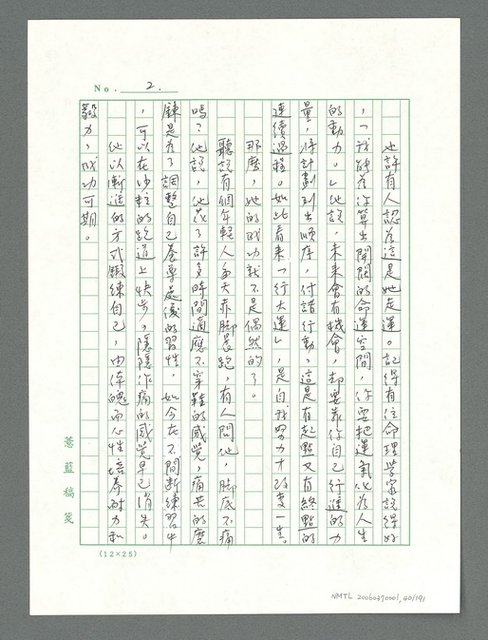 No. 2.
也許有人認為這是她走運。記得有位命理學家說得好
,「我能為你算出開闊的命運空間,你要把運氣化為人生
的動力。」他說,未來會有機會,却要靠你自己行進的力
量,將計劃列出順序,付諸行動,這是有起點又有終點的
連續過程。如此看來「行大運」,是自我努力才改變一生。
那麼,她的成功就不是偶然的了。
聽說有個年輕人每天赤脚晨跑,有人問他,脚底不痛
嗎?他說,他花了許多時間適應不穿鞋的感覺,痛苦的磨
鍊是為了調整自己養尊處優的習性,如今在不間斷練習中
,可以在沙粒的跑道上快步,隱隱作痛的感覺早已消失。
他以漸進的方式鍛練自己,由体魄而心性培養耐力和
毅力,成功可期。
薏藍稿箋
(12×25)
NMTL 20060390001, 60/191